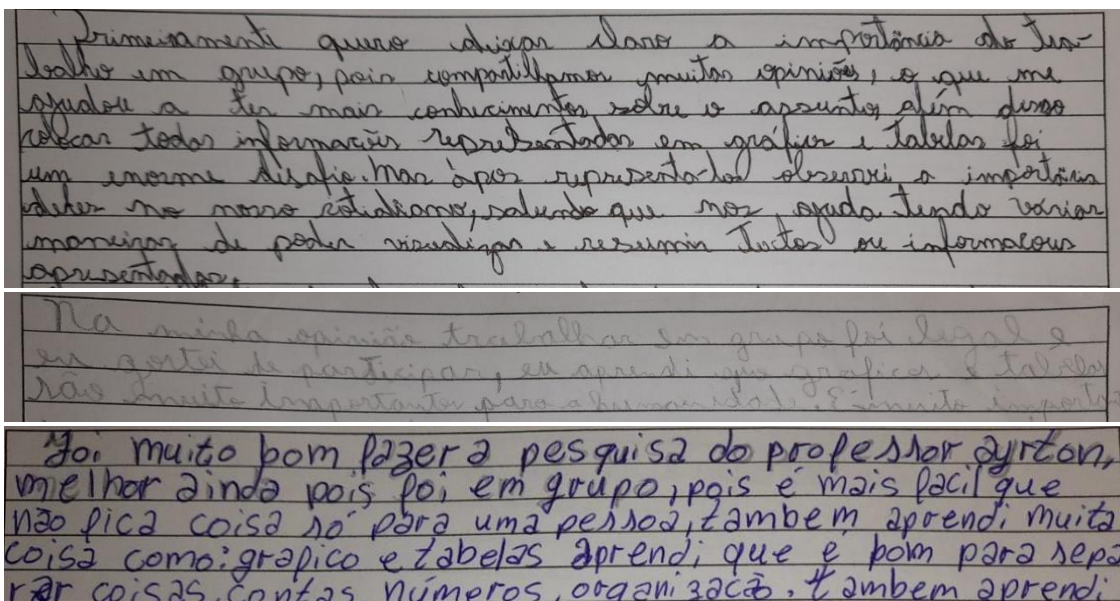 Primeiramente quero deixar claro a importância do tra-
balho em grupo, pois compartilhamos muitas opiniões, o que me
ajudou a ter mais conhecimentos sobre o assunto, além disso
colocar todas informações representadas em gráficos e tabelas foi
um enorme disafio. Mas ápos representados observei a importância
deles no nosso cotidiano, sabendo que nos ajuda tendo várias
maneiras de poder visualizar e resumir textos ou informacoes
apresentadas.
Na minha opinião trabalhar em grupo foi legal e
eu gostei de participar, eu aprendi que graficos e tabelas
são muito importantes para a humanidade. É muito importa
Foi muito bom fazer a pesquisa do professor ayrton,
melhor ainda pois foi em grupo, pois é mais facil que
não fica coisa só para uma pessoa, tambem aprendi muita
coisa como: grafico e tabelas aprendi que é bom para sepa
rar coisas, contas números, organização. tambem aprendi